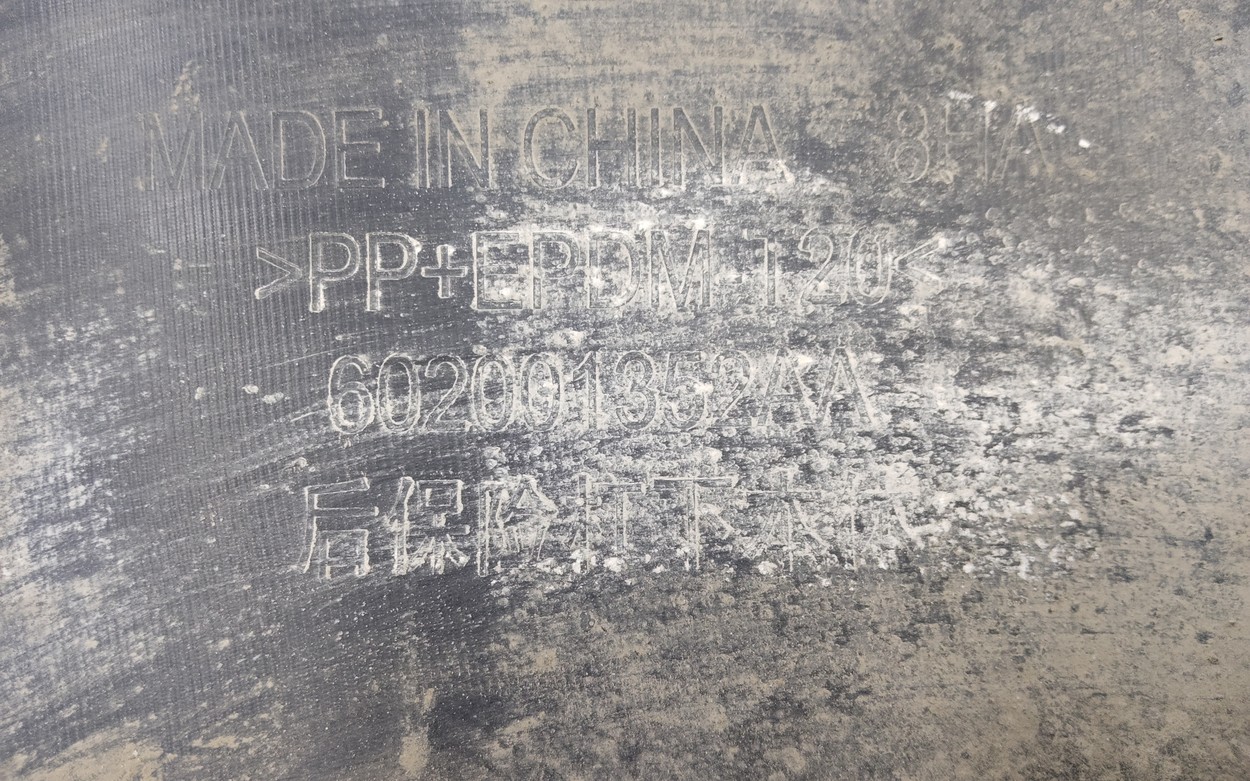 MADE IN CHINA 8HA
>PP+EPDM-T20<
602001352AA
后保险杠下本体